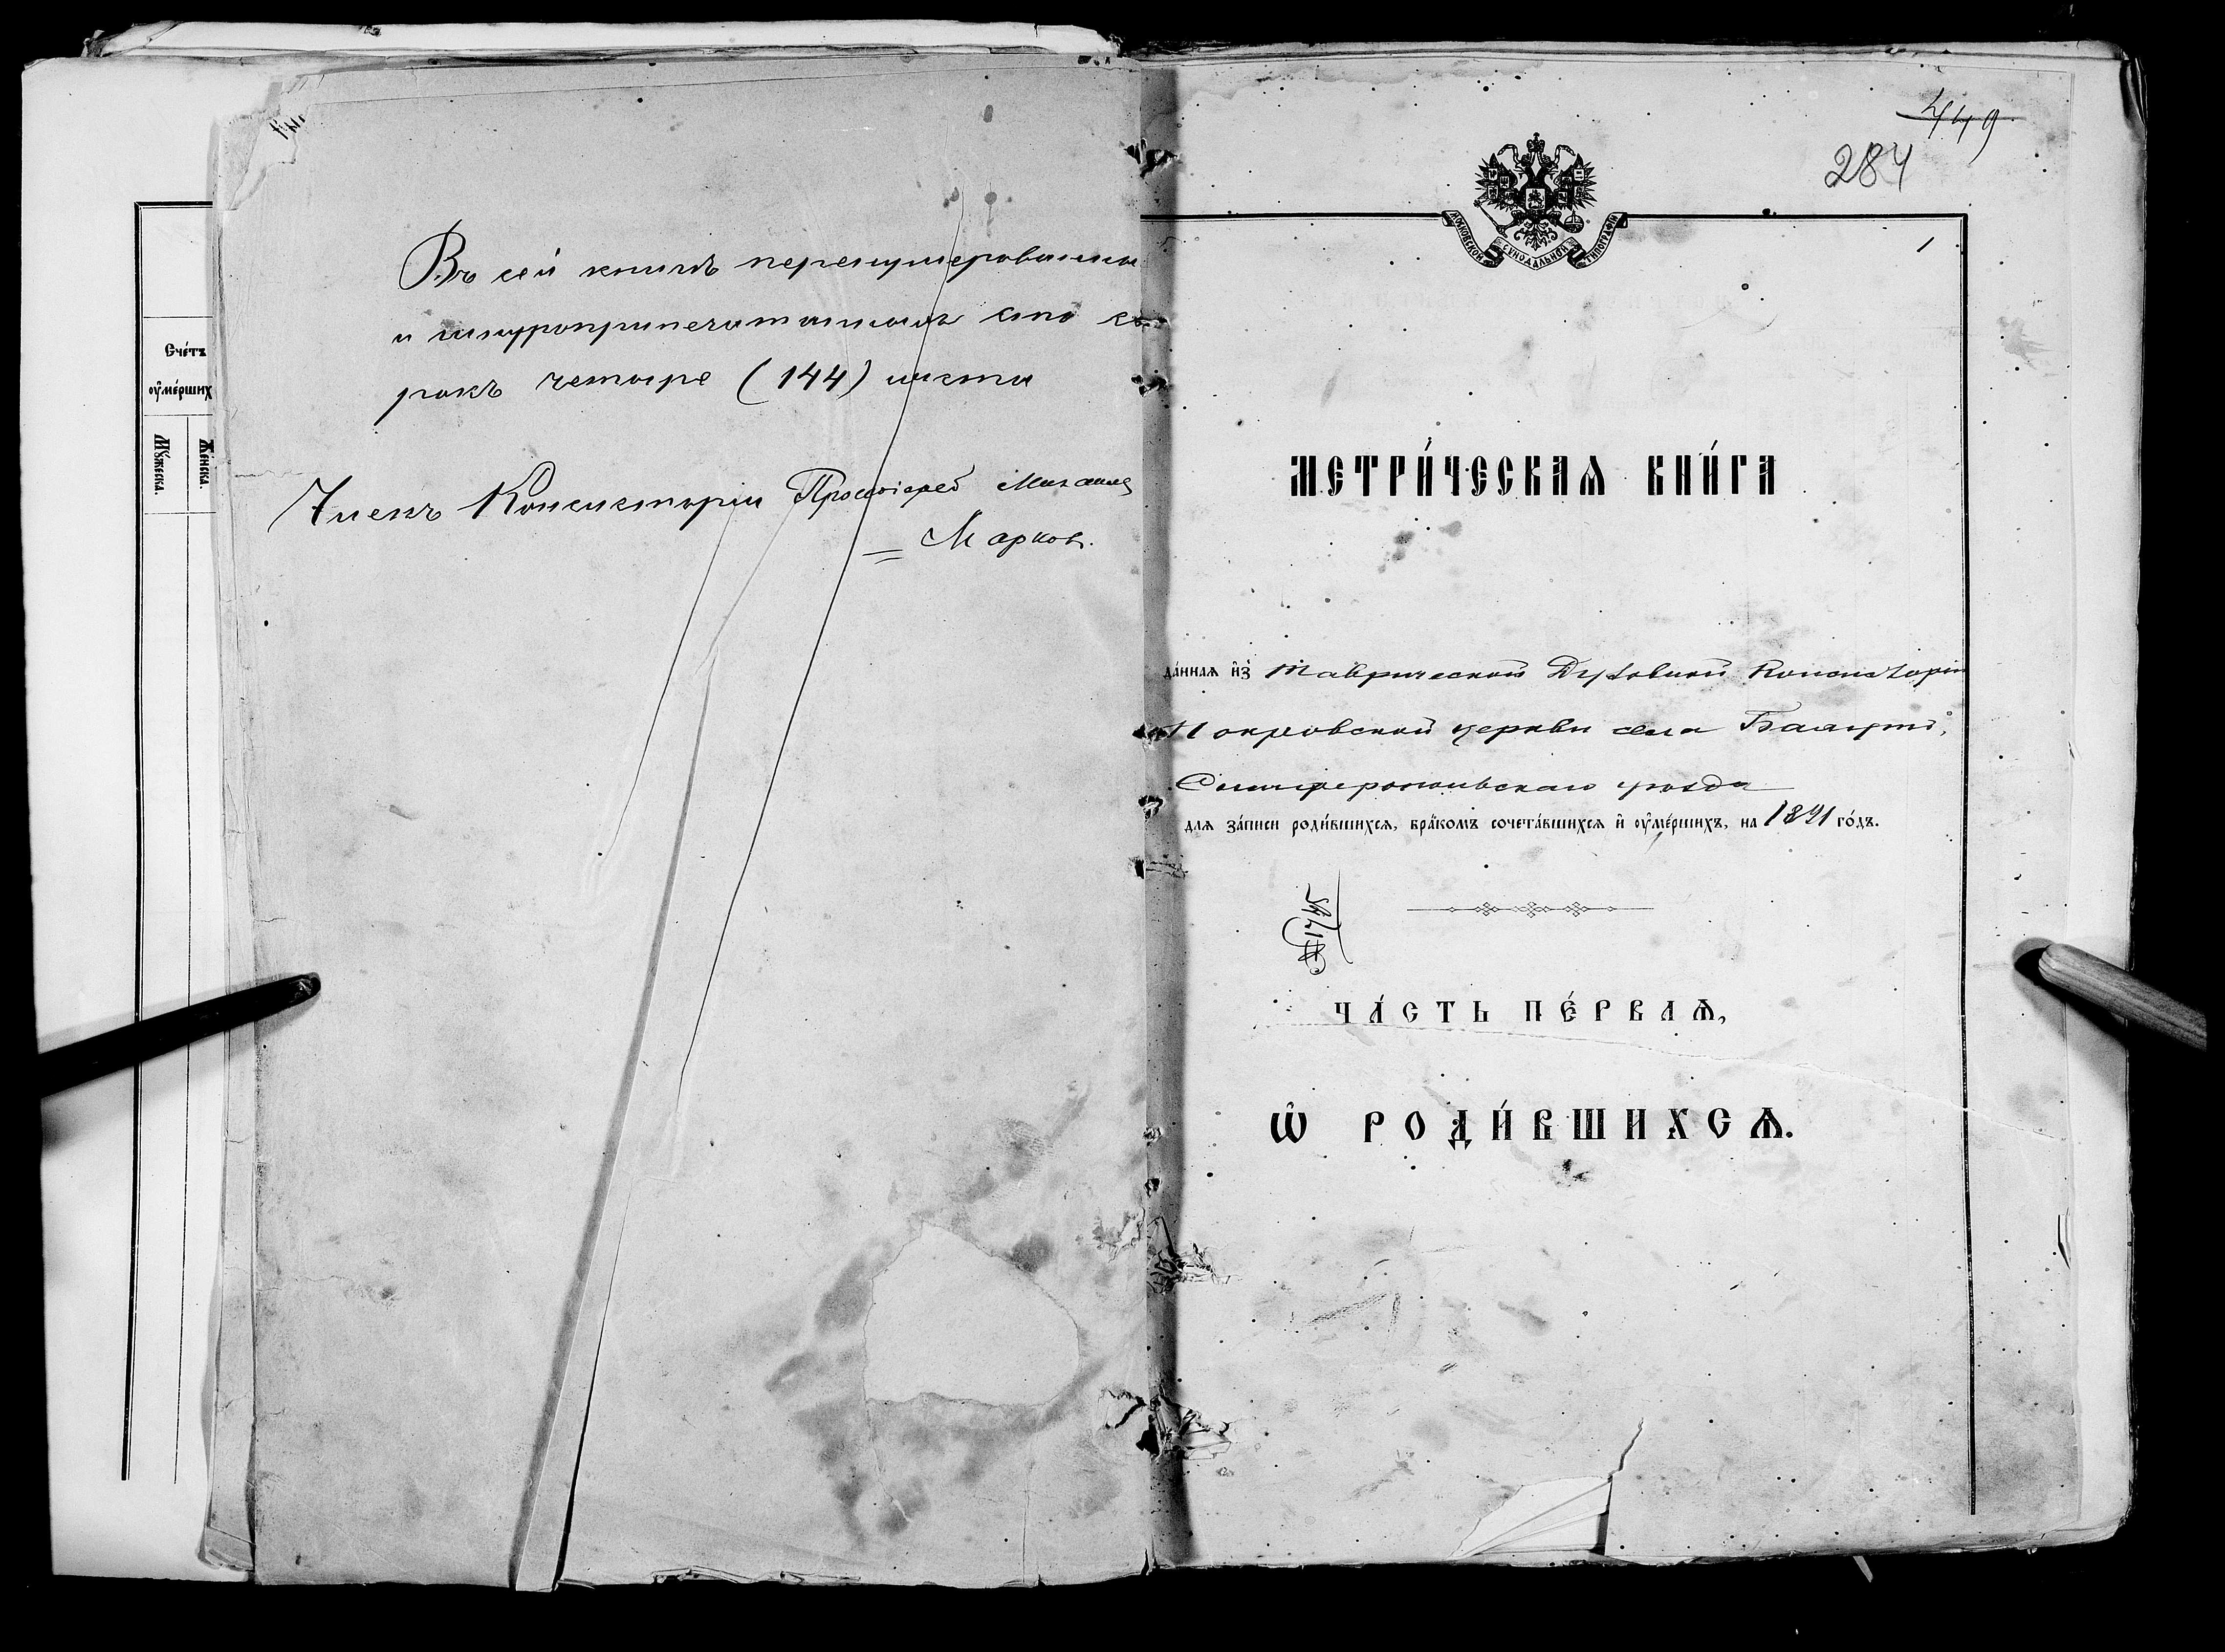 Счéтъ
оу҆мéршихъ
Мꙋ́жеска.
Же́нска.
Въ сей книгѣ перенумерованныхъ
и шнуроприпечатанныхъ сто со-
рокъ четыре (144) листа
Членъ Консисторіи Протоіерей Михаилъ
Марковъ.
449
284
1
МОСКОВСКОЙ СѴНОДАЛЬНОЙ ТИПОГРАФІИ
МЕТРИ́ЧЕСКАѦ КНИ́ГА
да́ннаѧ и҆з̾ Таврической Духовной Консисторіи
Покровской церкви села
Симферопольскаго уѣзда
для за́писи роди́вшихсѧ, бра́комъ сочета́вшихсѧ и҆ оу҆ме́ршихъ, на 1891 го́дъ.
ЧА́СТЬ ПЕ́РВАѦ,
Ѡ҆ РОДИ́ВШИХСѦ.